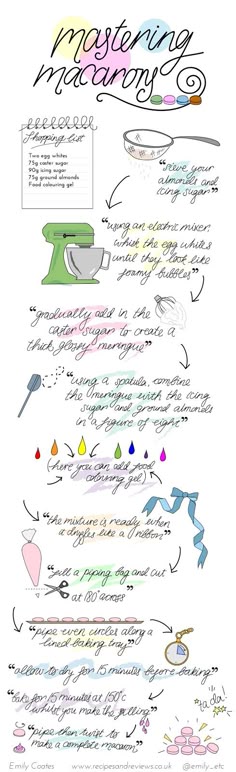 mastering
macarons
Shopping list
Two egg whites
75g caster sugar
90g icing sugar
75g ground almonds
Food colouring gel
"sieve your
almonds and
icing sugar"
"using an electric mixer,
whisk the egg whites
until they look like
foamy bubbles"
"gradually add in the
caster sugar to create a
thick, glossy meringue"
"using a spatula, combine
the meringue with the icing
sugar and ground almonds
in a figure of eight"
(here you can add food
colouring gel)
"the mixture is ready when
it dribbles like a ribbon"
"fill a piping bag and cut
at 180° across"
"pipe even circles along a
lined baking tray"
"allow to dry for 15 minutes before baking"
"bake for 15 minutes at 150°c
whilst you make the filling"
"pipe then twist to
make a complete macaron"
ta da!
Emily Coates www.recipesandreviews.co.uk @emily_etc